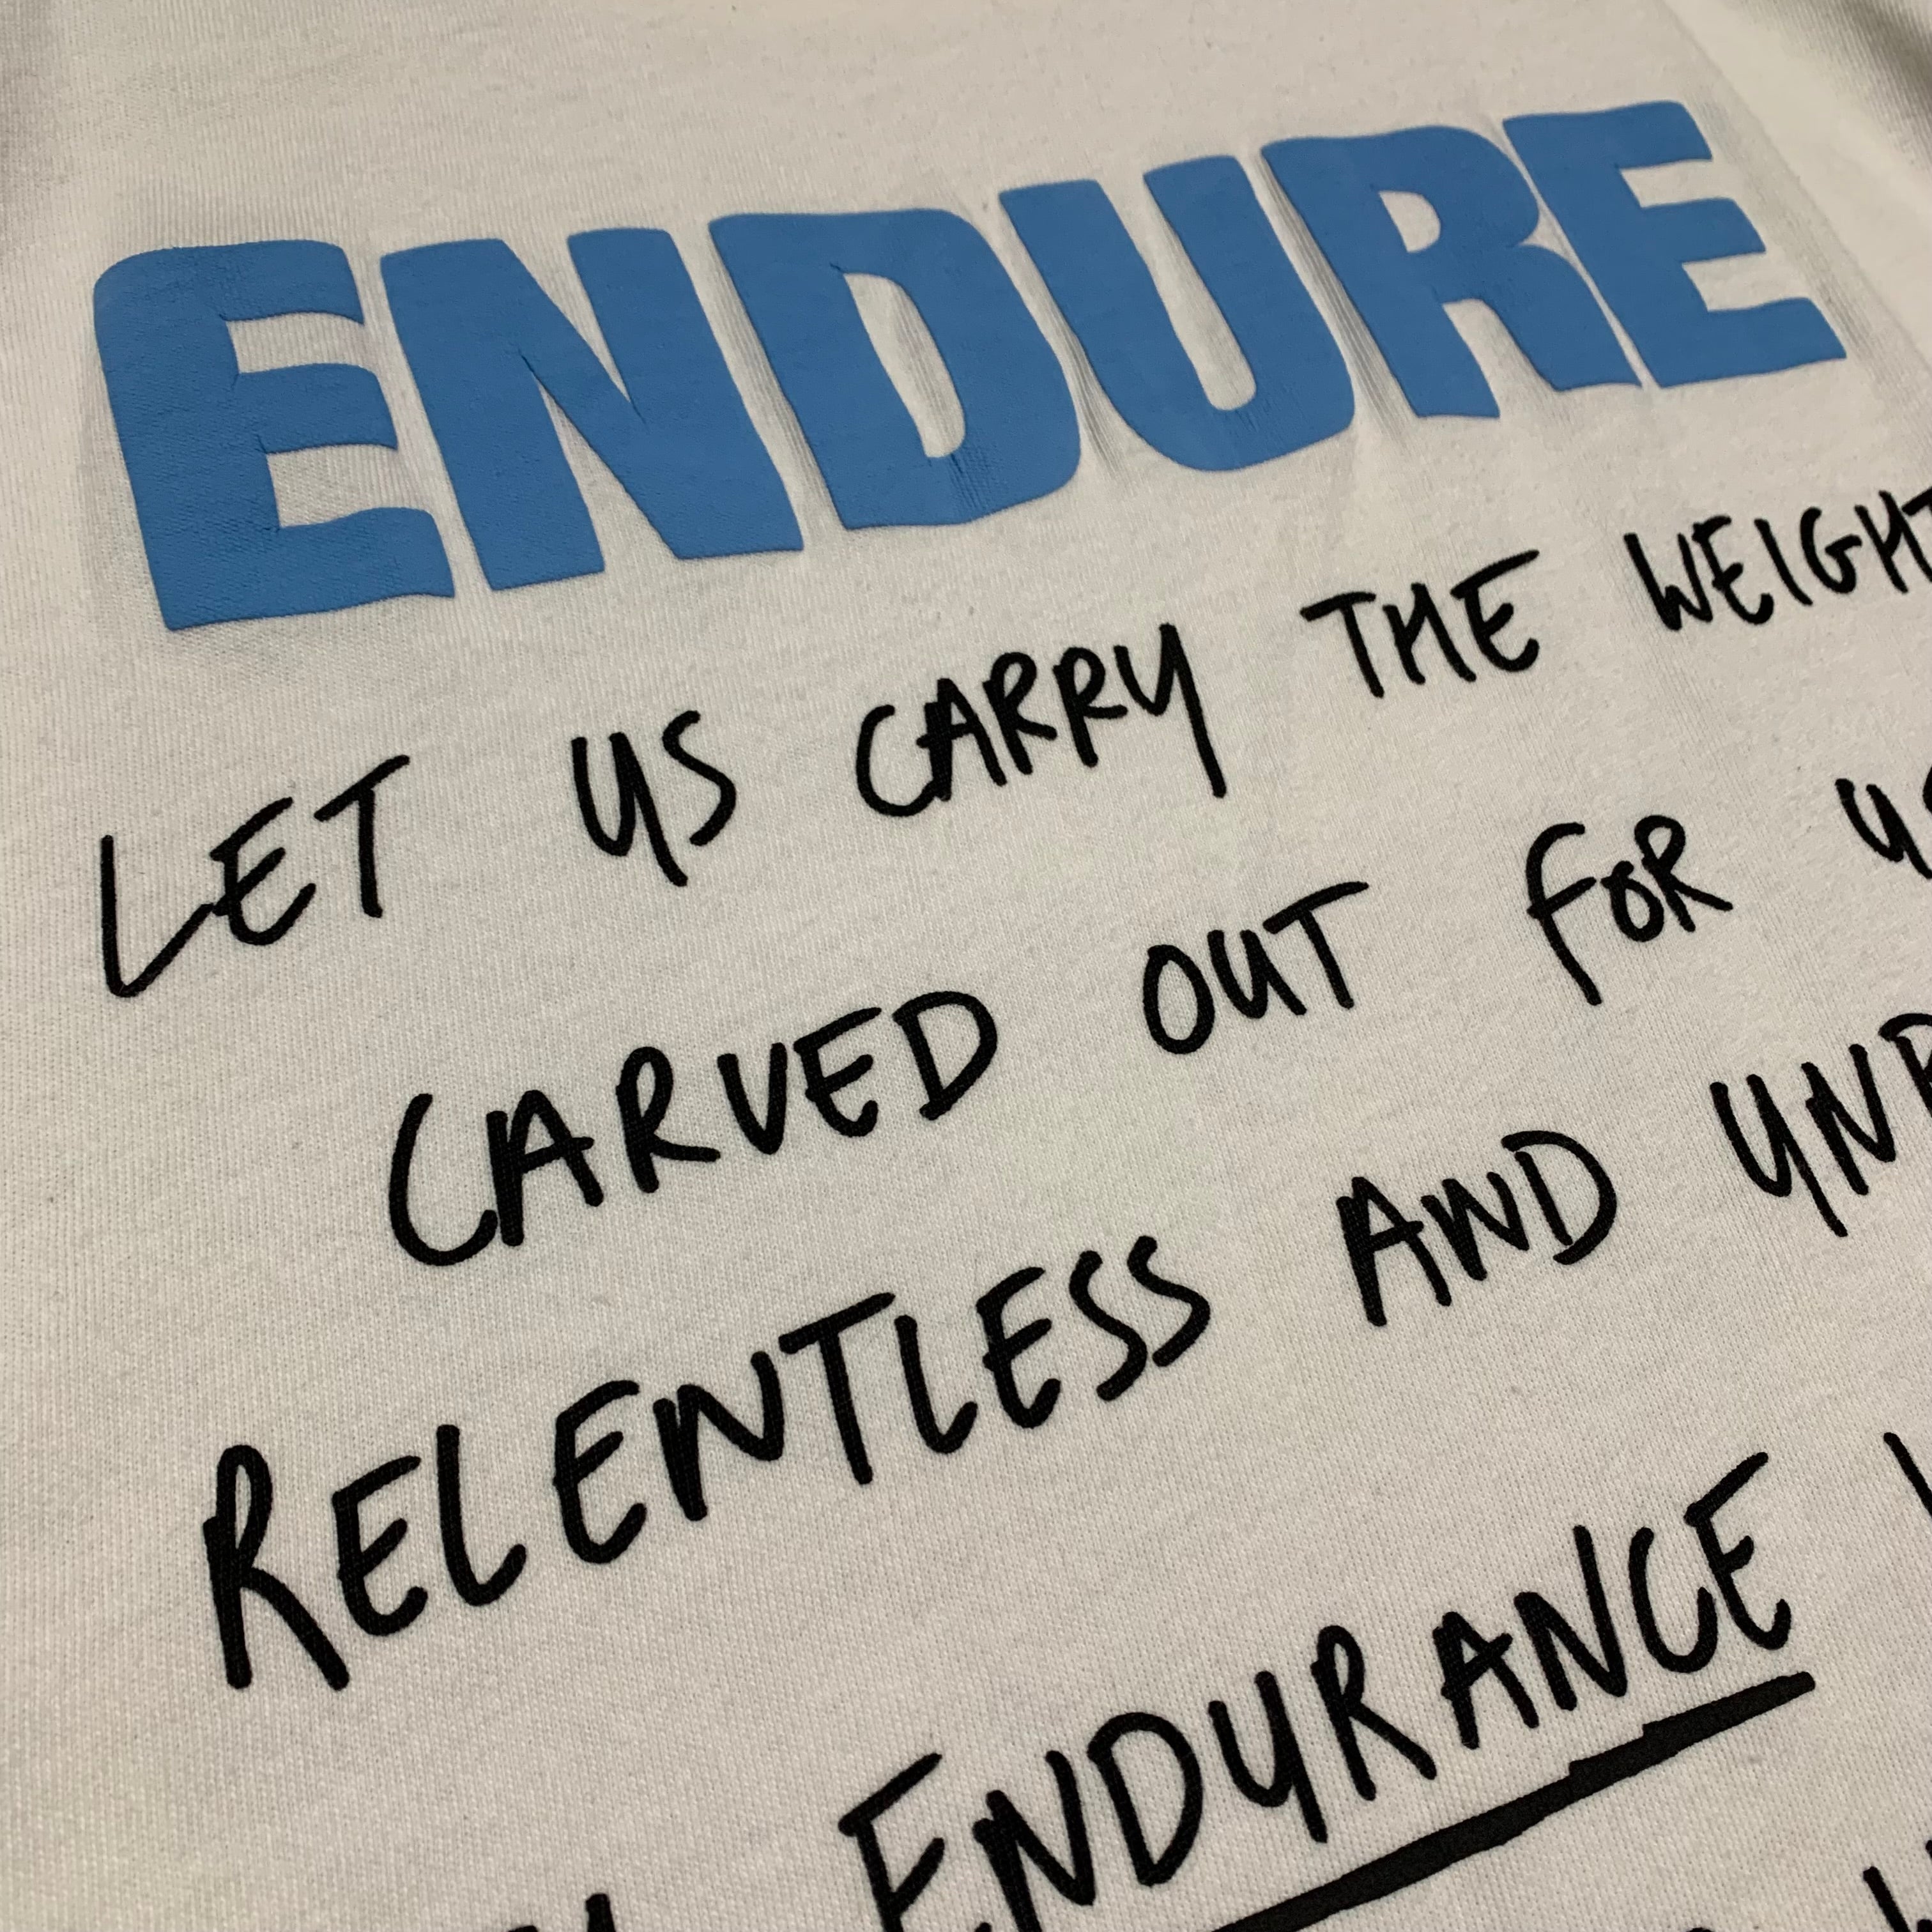 ENDURE
LET US CARRY THE WEIGHT
CARVED OUT FOR
RELENTLESS AND
ENDURANCE